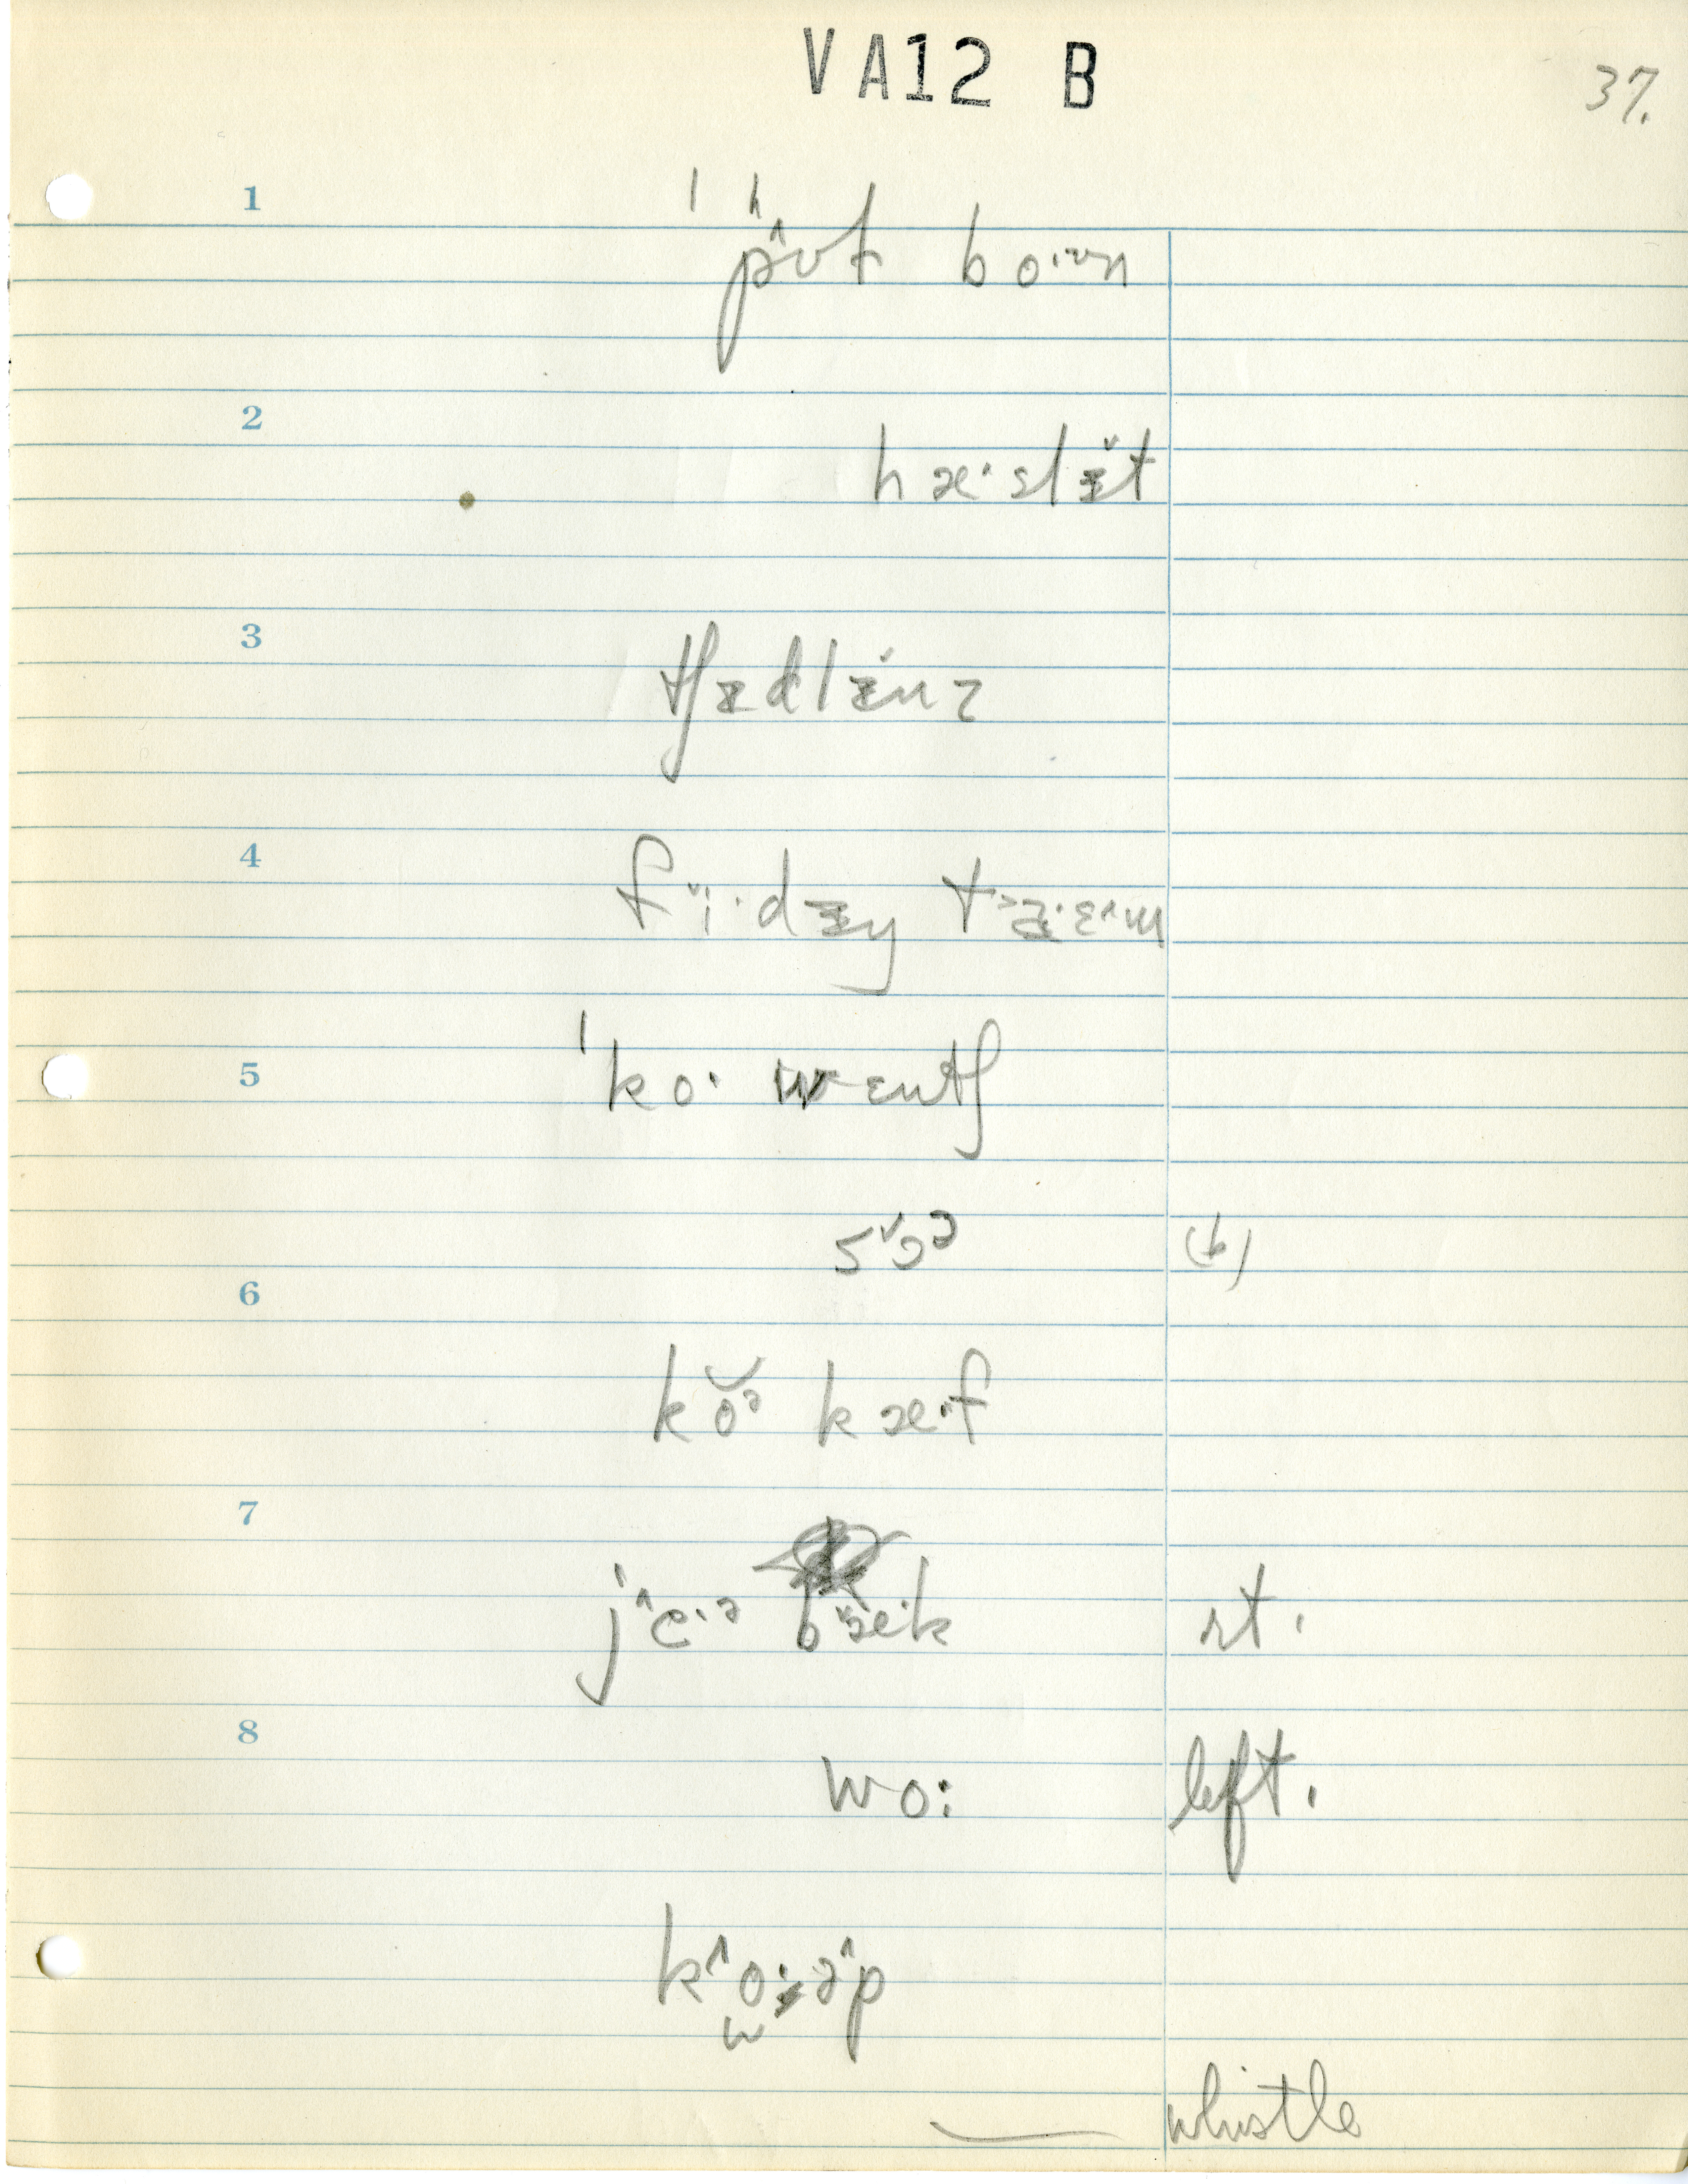 VA12 B
37.
1
ˈpʰʌvt bo·ʊn
2
hæ·slɨ̌t
3
tʃɨdlɨnz
4
fɪ̌i·dɨŋ ta˃·ɛ^m
5
ˈko· wɛntʃ
sˇɔᵊ (b)
6
kŏᵊ kæ·f
7
j^e·ə bæˇ·k rt.
8
wo: left.
k^o·ə^p
w
whistle